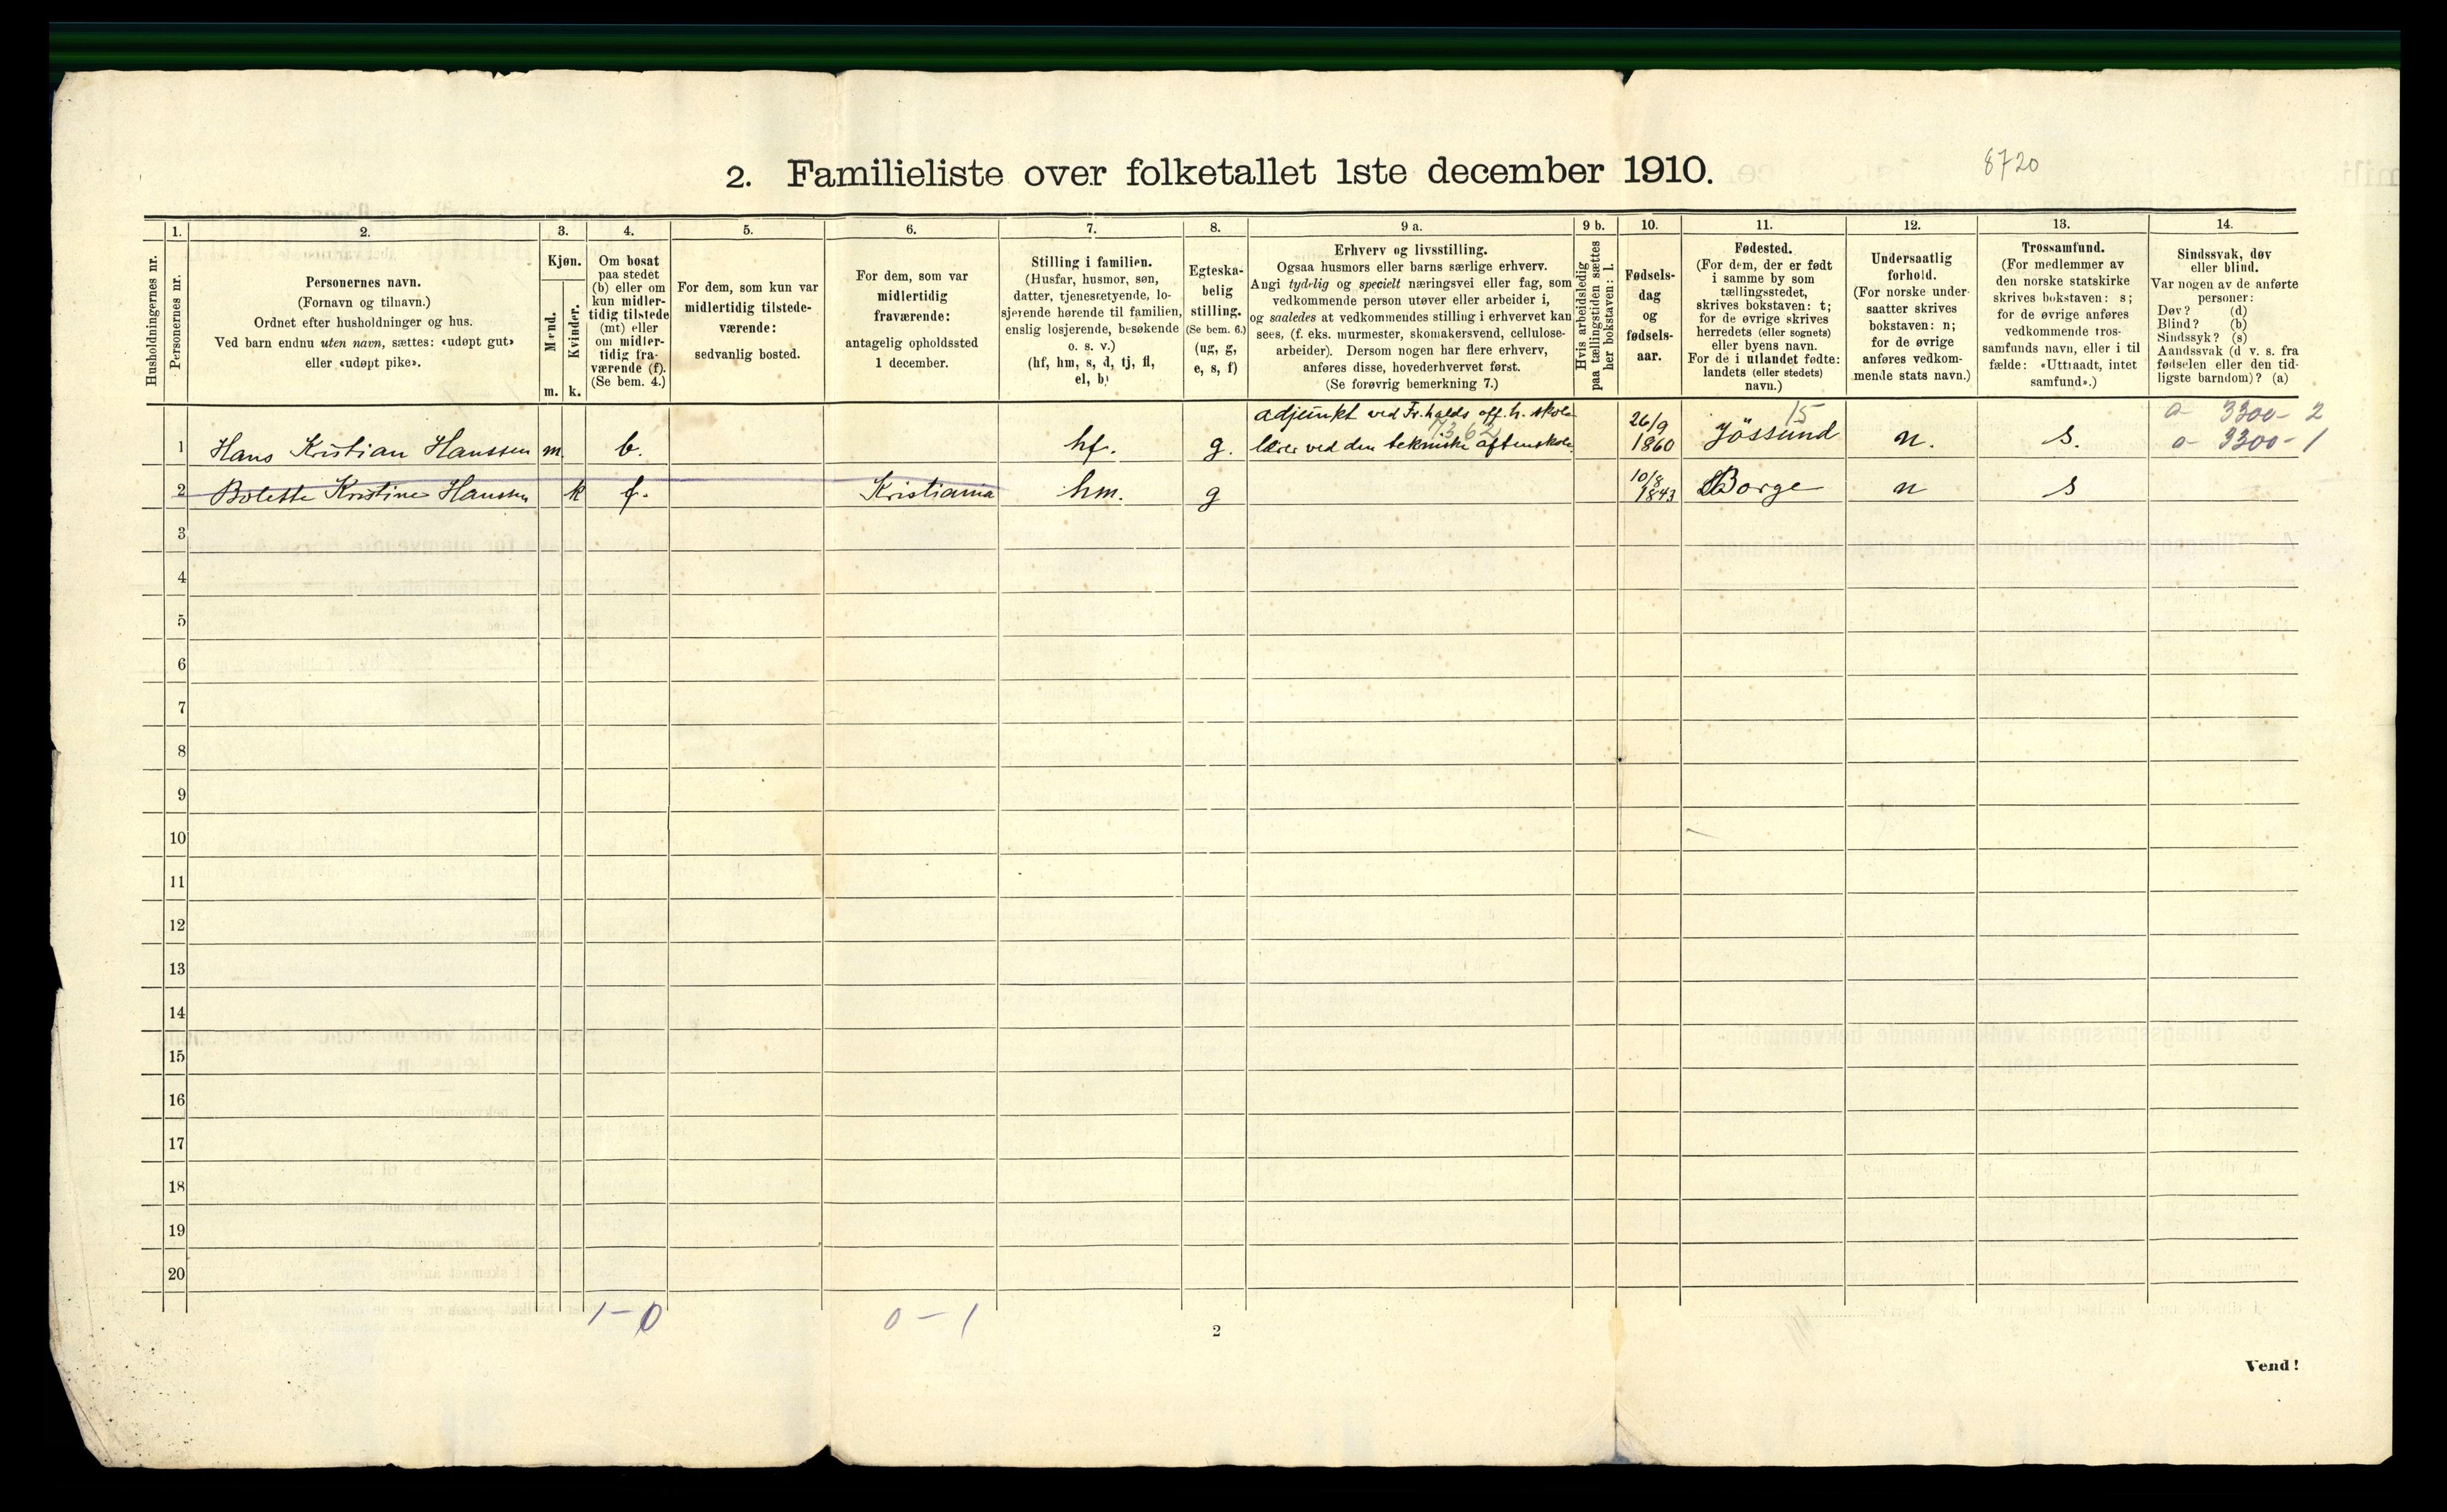 2. Familieliste over folketallet 1ste december 1910.
8720
Husholdningernes nr.
1.
Personernes nr.
2.
Personernes navn.
(Fornavn og tilnavn.)
Ordnet efter husholdninger og hus.
Ved barn endnu uten navn, sættes: «udøpt gut»
eller «udøpt pike».
3.
Kjøn.
Mænd.
Kvinder.
m. k.
4.
Om bosat
paa stedet
(b) eller om
kun midler-
tidig tilstede
(mt) eller
om midler-
tidig fra-
værende (f).
(Se bem. 4.)
5.
For dem, som kun var
midlertidig tilstede-
værende:
sedvanlig bosted.
6.
For dem, som var
midlertidig
fraværende:
antagelig opholdssted
1 december.
7.
Stilling i familien.
(Husfar, husmor, søn,
datter, tjenestetyende, lo-
sjerende hørende til familien,
enslig losjerende, besøkende
o. s. v.)
(hf, hm, s, d, tj, fl,
el, b)
8.
Egteska-
belig
stilling.
(Se bem. 6.)
(ug, g,
e, s, f)
9 a.
Erhverv og livsstilling.
Ogsaa husmors eller barns særlige erhverv.
Angi tydelig og specielt næringsvei eller fag, som
vedkommende person utøver eller arbeider i,
og saaledes at vedkommendes stilling i erhvervet kan
sees, (f. eks. murmester, skomakersvend, cellulose-
arbeider). Dersom nogen har flere erhverv,
anføres disse, hovederhvervet først.
(Se forøvrig bemerkning 7.)
9 b.
Hvis arbeidsledig
paa tællingstiden sættes
her bokstaven: l.
10.
Fødsels-
dag
og
fødsels-
aar.
11.
Fødested.
(For dem, der er født
i samme by som
tællingsstedet,
skrives bokstaven: t;
for de øvrige skrives
herredets (eller sognets)
eller byens navn.
For de i utlandet fødte:
landets (eller stedets)
navn.)
12.
Undersaatlig
forhold.
(For norske under-
saatter skrives
bokstaven: n;
for de øvrige
anføres vedkom-
mende stats navn.)
13.
Trossamfund.
(For medlemmer av
den norske statskirke
skrives bokstaven: s;
for de øvrige anføres
vedkommende tros-
samfunds navn, eller i til
fælde: «Uttraadt, intet
samfund».)
14.
Sindssvak, døv
eller blind.
Var nogen av de anførte
personer:
Døv? (d)
Blind? (b)
Sindssyk? (s)
Aandssvak (d v. s. fra
fødselen eller den tid-
ligste barndom)? (a)
adjunkt ved Fr.halds off. h. skole 26/9 15 a 3300-2
7362
1 Hans Kristian Hanssen m. b. hf. g. lærer ved den tekniske aftenskole. 1860 Jössund n. s. a 3300-1
2 Bolette Kristine Hanssen k f. Kristiania hm. g 10/8 1843 Borge n s
3
4
5
6
7
8
9
10
11
12
13
14
15
16
17
18
19
20
1-0 0-1
2
Vend!